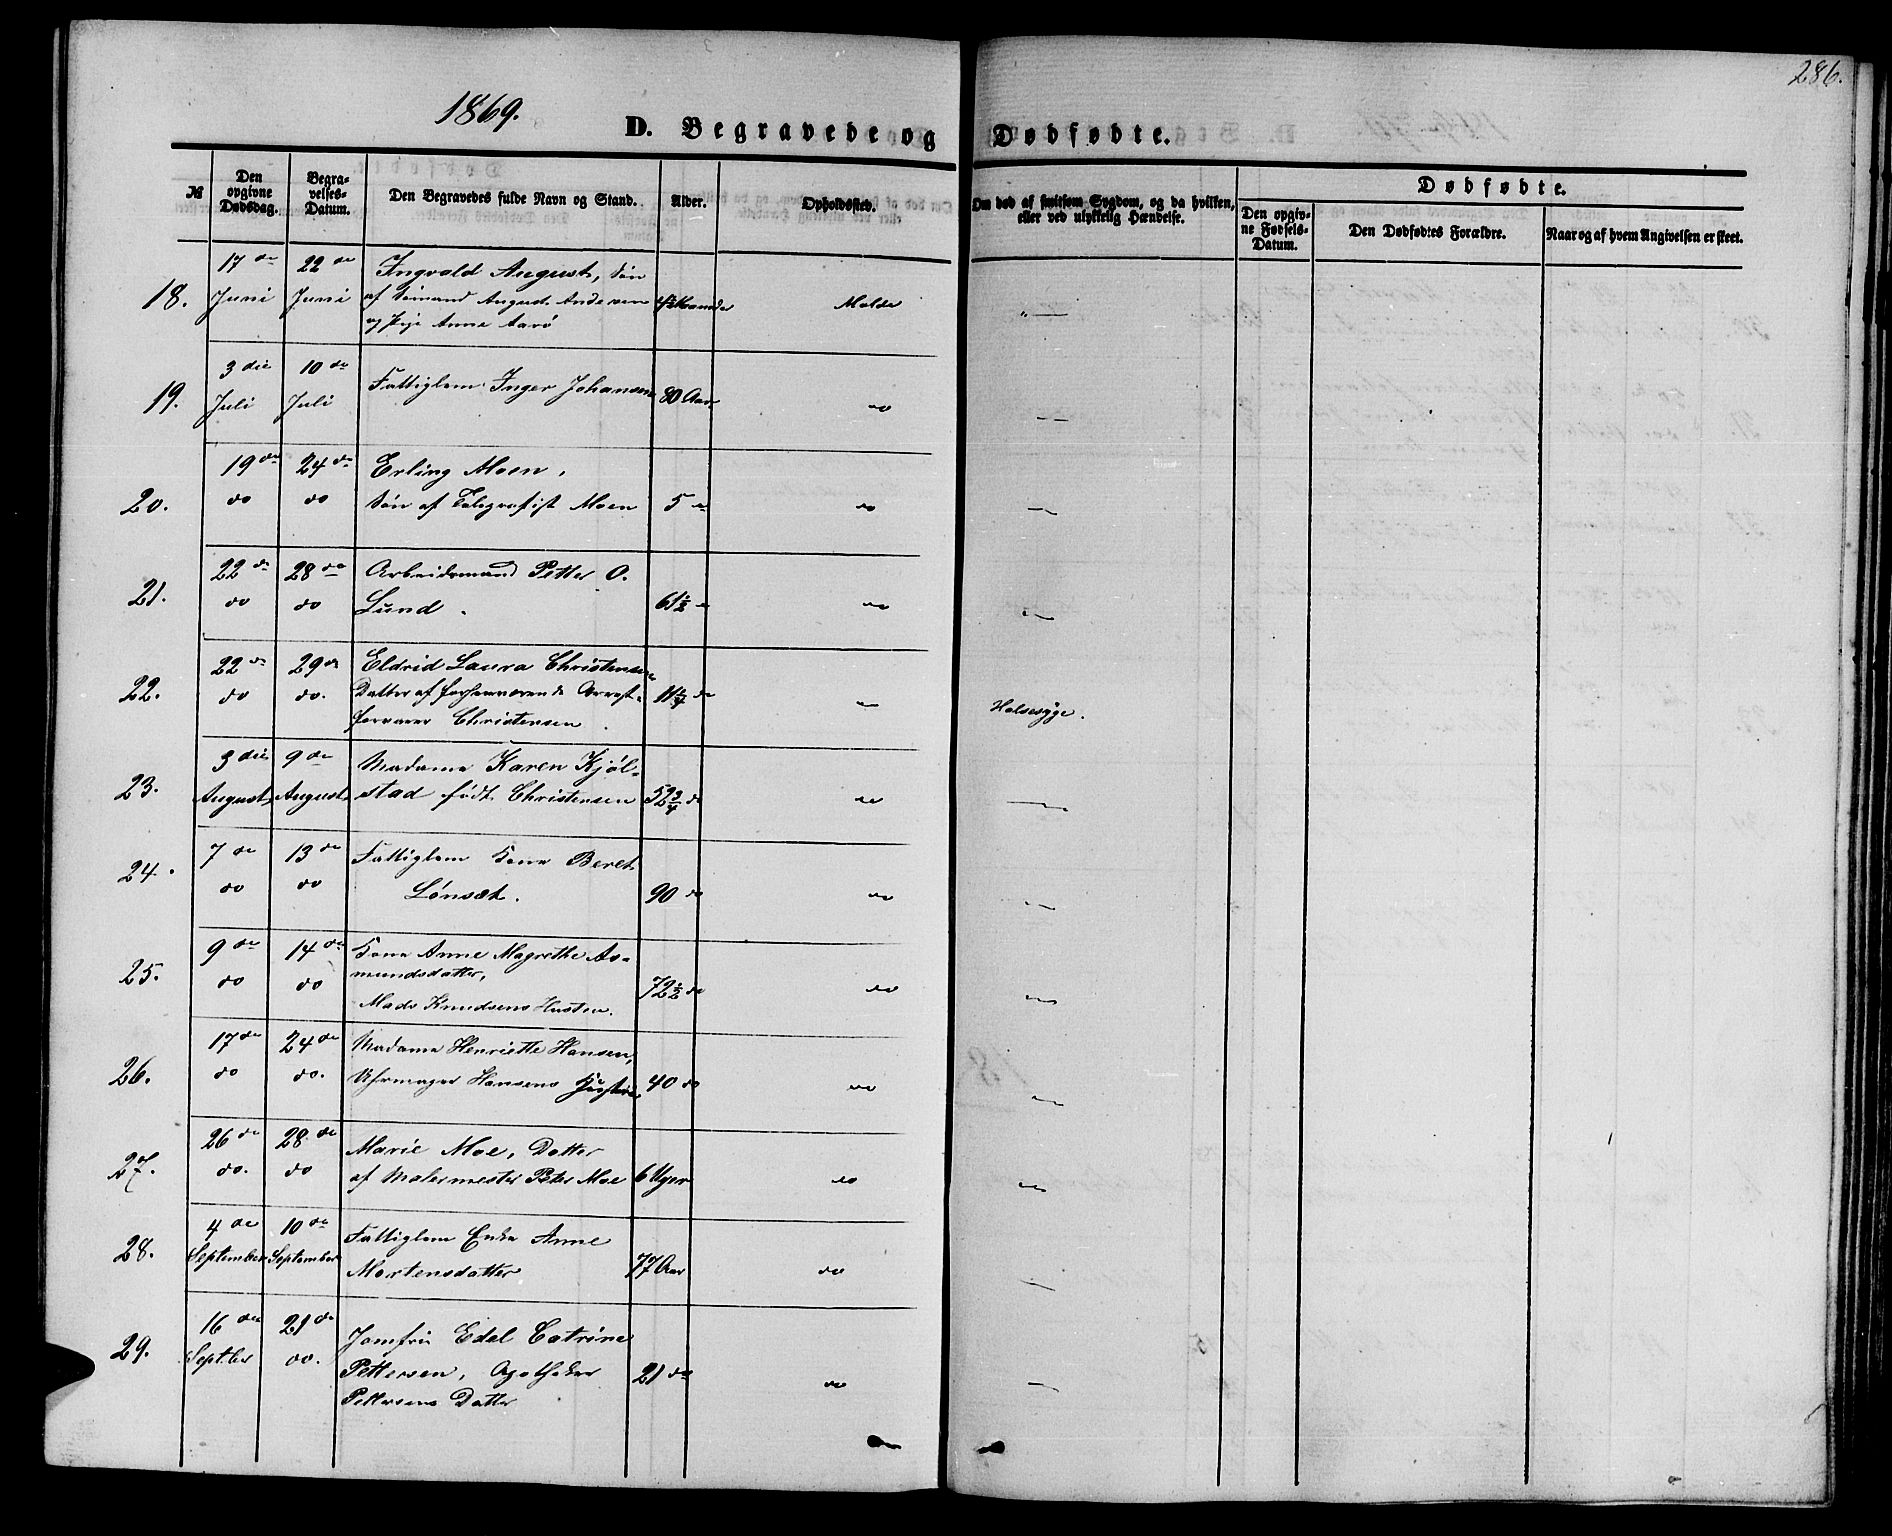 286.
1869.
D. Begravede og Dødfødte.
№
Den opgivne Dødsdag.
Begravelses-Datum.
Den Begravedes fulde Navn og Stand.
Alder.
Opholdssted.
Om død af smitsom Sygdom, og da hvilken, eller ved ulykkelig Hændelse.
Dødfødte.
Den opgivne Fødsels-Datum.
Den Dødfødtes Forældre.
Naar og af hvem Angivelsen er skeet.
18. 17de Juni 22de Juni
Ingvald August, Søn
af Sømand August Andersen
og Pige Anne Aarø
Maaneder Molde
19. 3die Juli 10de Juli
Fattiglem Inger Johansen 80 Aar do
20. 19de do 24de do
Erling Moen,
Søn af Telegrafist Moen 5 do do
21. 22de do 28de do
Arbeidsmand Petter O.
Lund. 61½ do do
22. 22de do 29de do.
Eldrid Laura Christensen
Datter af forhenværende Arrest-
forvarer Christensen. 11¼ do do Halsesyge.
23. 3die August 9de August
Madame Karen Kjøl-
stad født Christensen 52¾ do do
24. 7de do 13de do
Fattiglem Kone Beret
Lønset. 90 do do
25. 9de do 14de do
Kone Anne Magrethe As-
mundsdatter,
Mads Knudsens Hustru. 72½ do do
26. 17de do 24de do.
Madame Henriette Hansen,
Uhrmager Hansens Hustru 40 do do
27. 26de do. 28de do
Marie Moe, Datter
af Malermester Peter Moe 6 Uger do
28. 4de September 10de September
Fattiglem Enke Anne
Mortensdatter 77 Aar do
29. 16de Septber 21de do.
Jomfru Edel Catrine
Pettersen, Apotheker
Pettersens Datter 21 do do